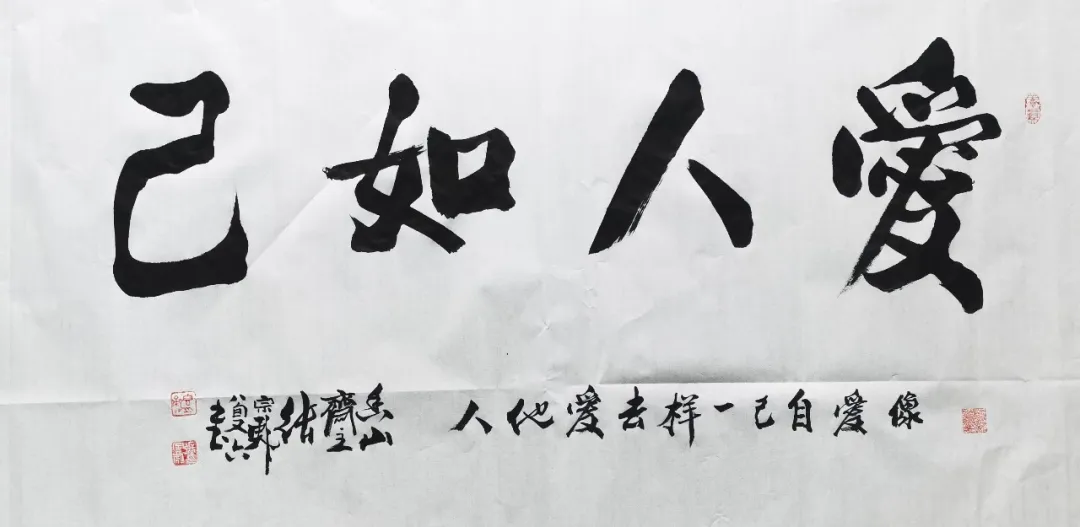 愛人如己
像愛自己一样去愛他人
山
齋主